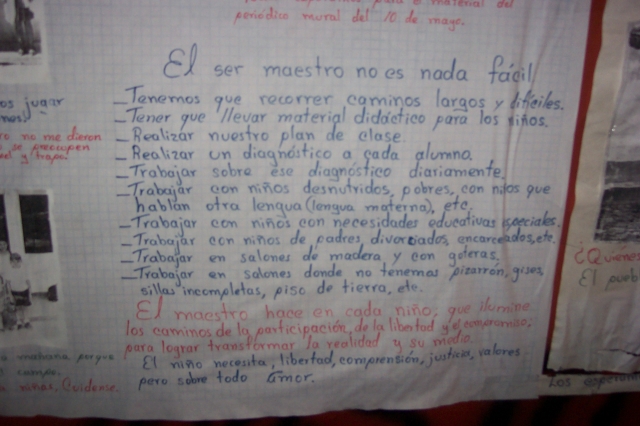 material del
periódico mural del 10 de mayo.
El ser maestro no es nada fácil
_Tenemos que recorrer caminos largos y difíciles.
_Tener que llevar material didáctico para los niños.
_Realizar nuestro plan de clase.
_Realizar un diagnóstico a cada alumno.
_Trabajar sobre ese diagnóstico diariamente.
_Trabajar con niños desnutridos, pobres, con niños que
hablan otra lengua (lengua materna), etc.
_Trabajar con niños con necesidades educativas especiales.
_Trabajar con niños de padres divorciados, encarcelados, etc.
_Trabajar en salones de madera y con goteras.
_Trabajar en salones donde no tenemos pizarrón, gises,
sillas incompletas, piso de tierra, etc.
El maestro hace en cada niño; que ilumine
los caminos de la participación, de la libertad y el compromiso;
para lograr transformar la realidad y su medio.
El niño necesita, libertad, comprensión, justicia, valores
pero sobre todo Amor.
os jugar
ro no me dieron
se preocupen
mañana porque
campo.
niñas. Cuídense.
¿Quienes
El pueb
Los